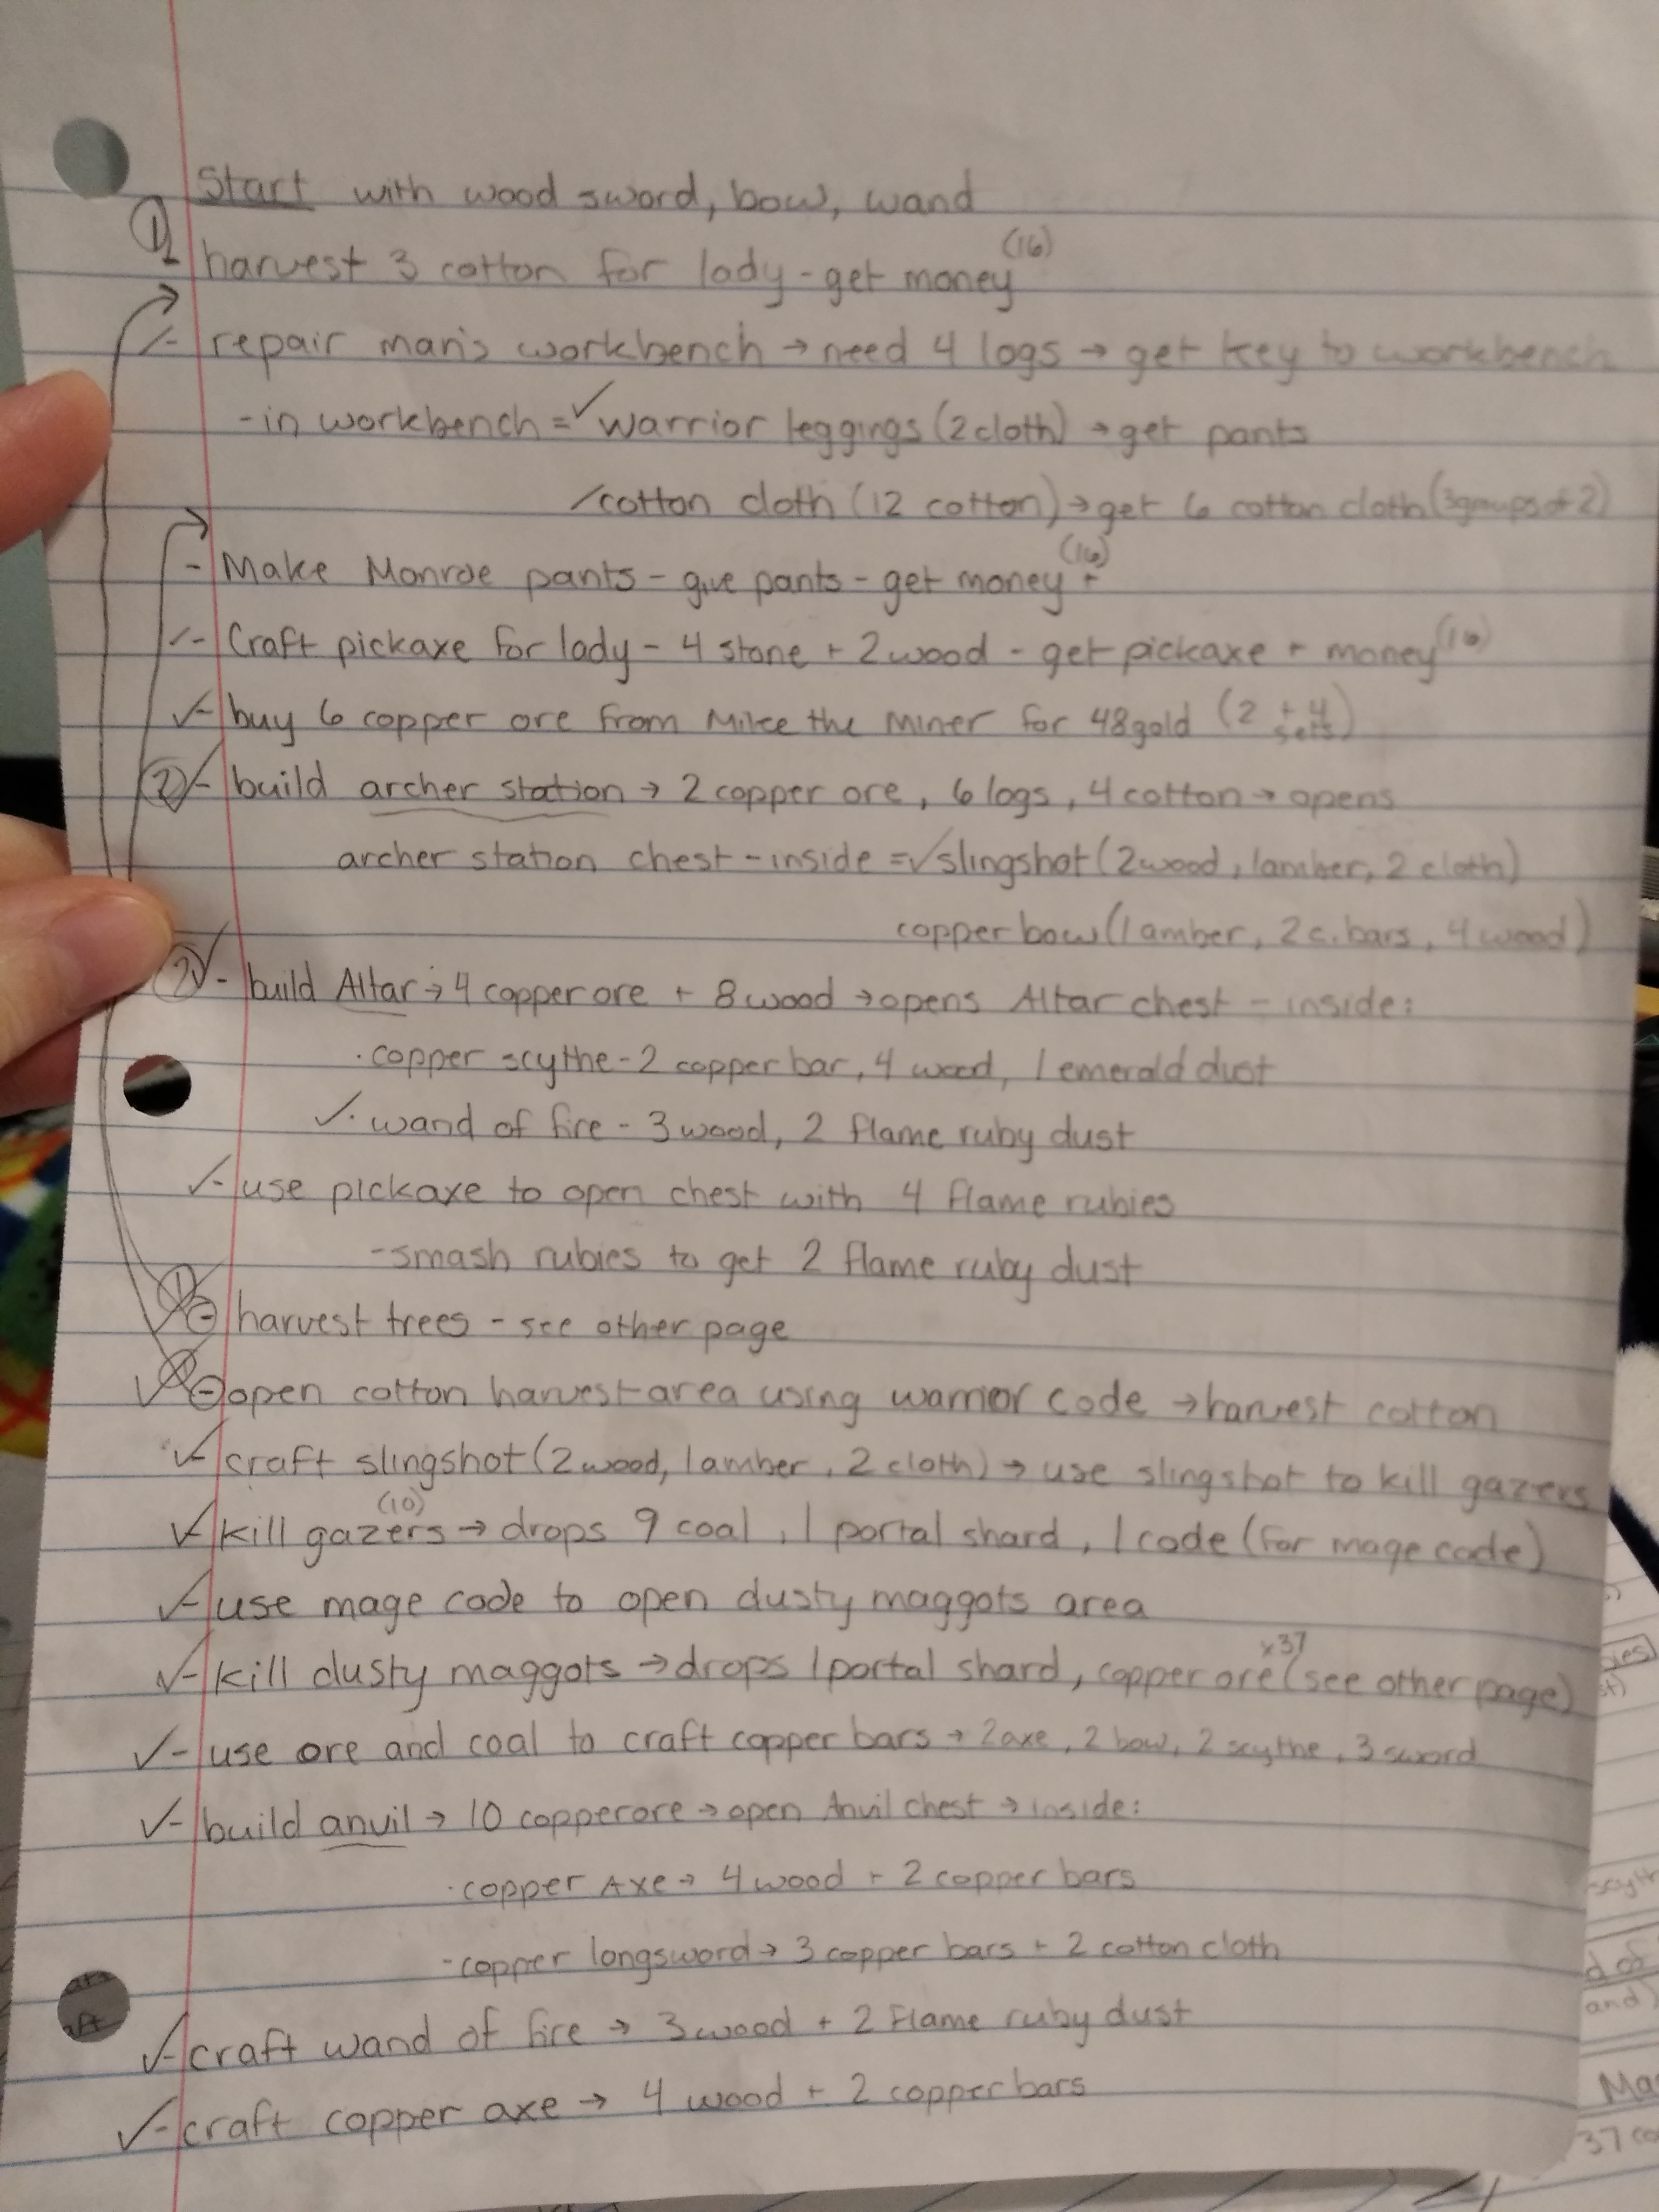 Start with wood sword, bow, wand
① harvest 3 cotton for lady - get money (16)
- repair man's workbench → need 4 logs → get key to workbench
- in workbench = ✓ warrior leggings (2 cloth) → get pants
/cotton cloth (12 cotton) → get 6 cotton cloth (3 groups of 2)
- Make Monroe pants - give pants - get money (16)
✓- Craft pickaxe for lady - 4 stone + 2 wood - get pickaxe + money (16)
✓- buy 6 copper ore from Mike the Miner for 48 gold (2 + 4 sets)
②✓- build archer station → 2 copper ore, 6 logs, 4 cotton → opens
archer station chest - inside = ✓ slingshot (2 wood, 1 amber, 2 cloth)
copper bow (1 amber, 2 c. bars, 4 wood)
②✓- build Altar → 4 copper ore + 8 wood → opens Altar chest - inside:
· copper scythe - 2 copper bar, 4 wood, 1 emerald dust
✓· wand of fire - 3 wood, 2 flame ruby dust
✓- use pickaxe to open chest with 4 flame rubies
- smash rubies to get 2 flame ruby dust
- harvest trees - see other page
✓- open cotton harvest area using warrior code → harvest cotton
✓- craft slingshot (2 wood, 1 amber, 2 cloth) → use slingshot to kill gazers
✓- kill gazers (10) → drops 9 coal, 1 portal shard, 1 code (for mage code)
✓- use mage code to open dusty maggots area
✓- kill dusty maggots → drops 1 portal shard, copper ore x37 (see other page)
✓- use ore and coal to craft copper bars → 2 axe, 2 bow, 2 scythe, 3 sword
✓- build anvil → 10 copper ore → open Anvil chest → inside:
· copper Axe → 4 wood + 2 copper bars
- copper longsword → 3 copper bars + 2 cotton cloth
✓- craft wand of fire → 3 wood + 2 Flame ruby dust
✓- craft copper axe → 4 wood + 2 copper bars